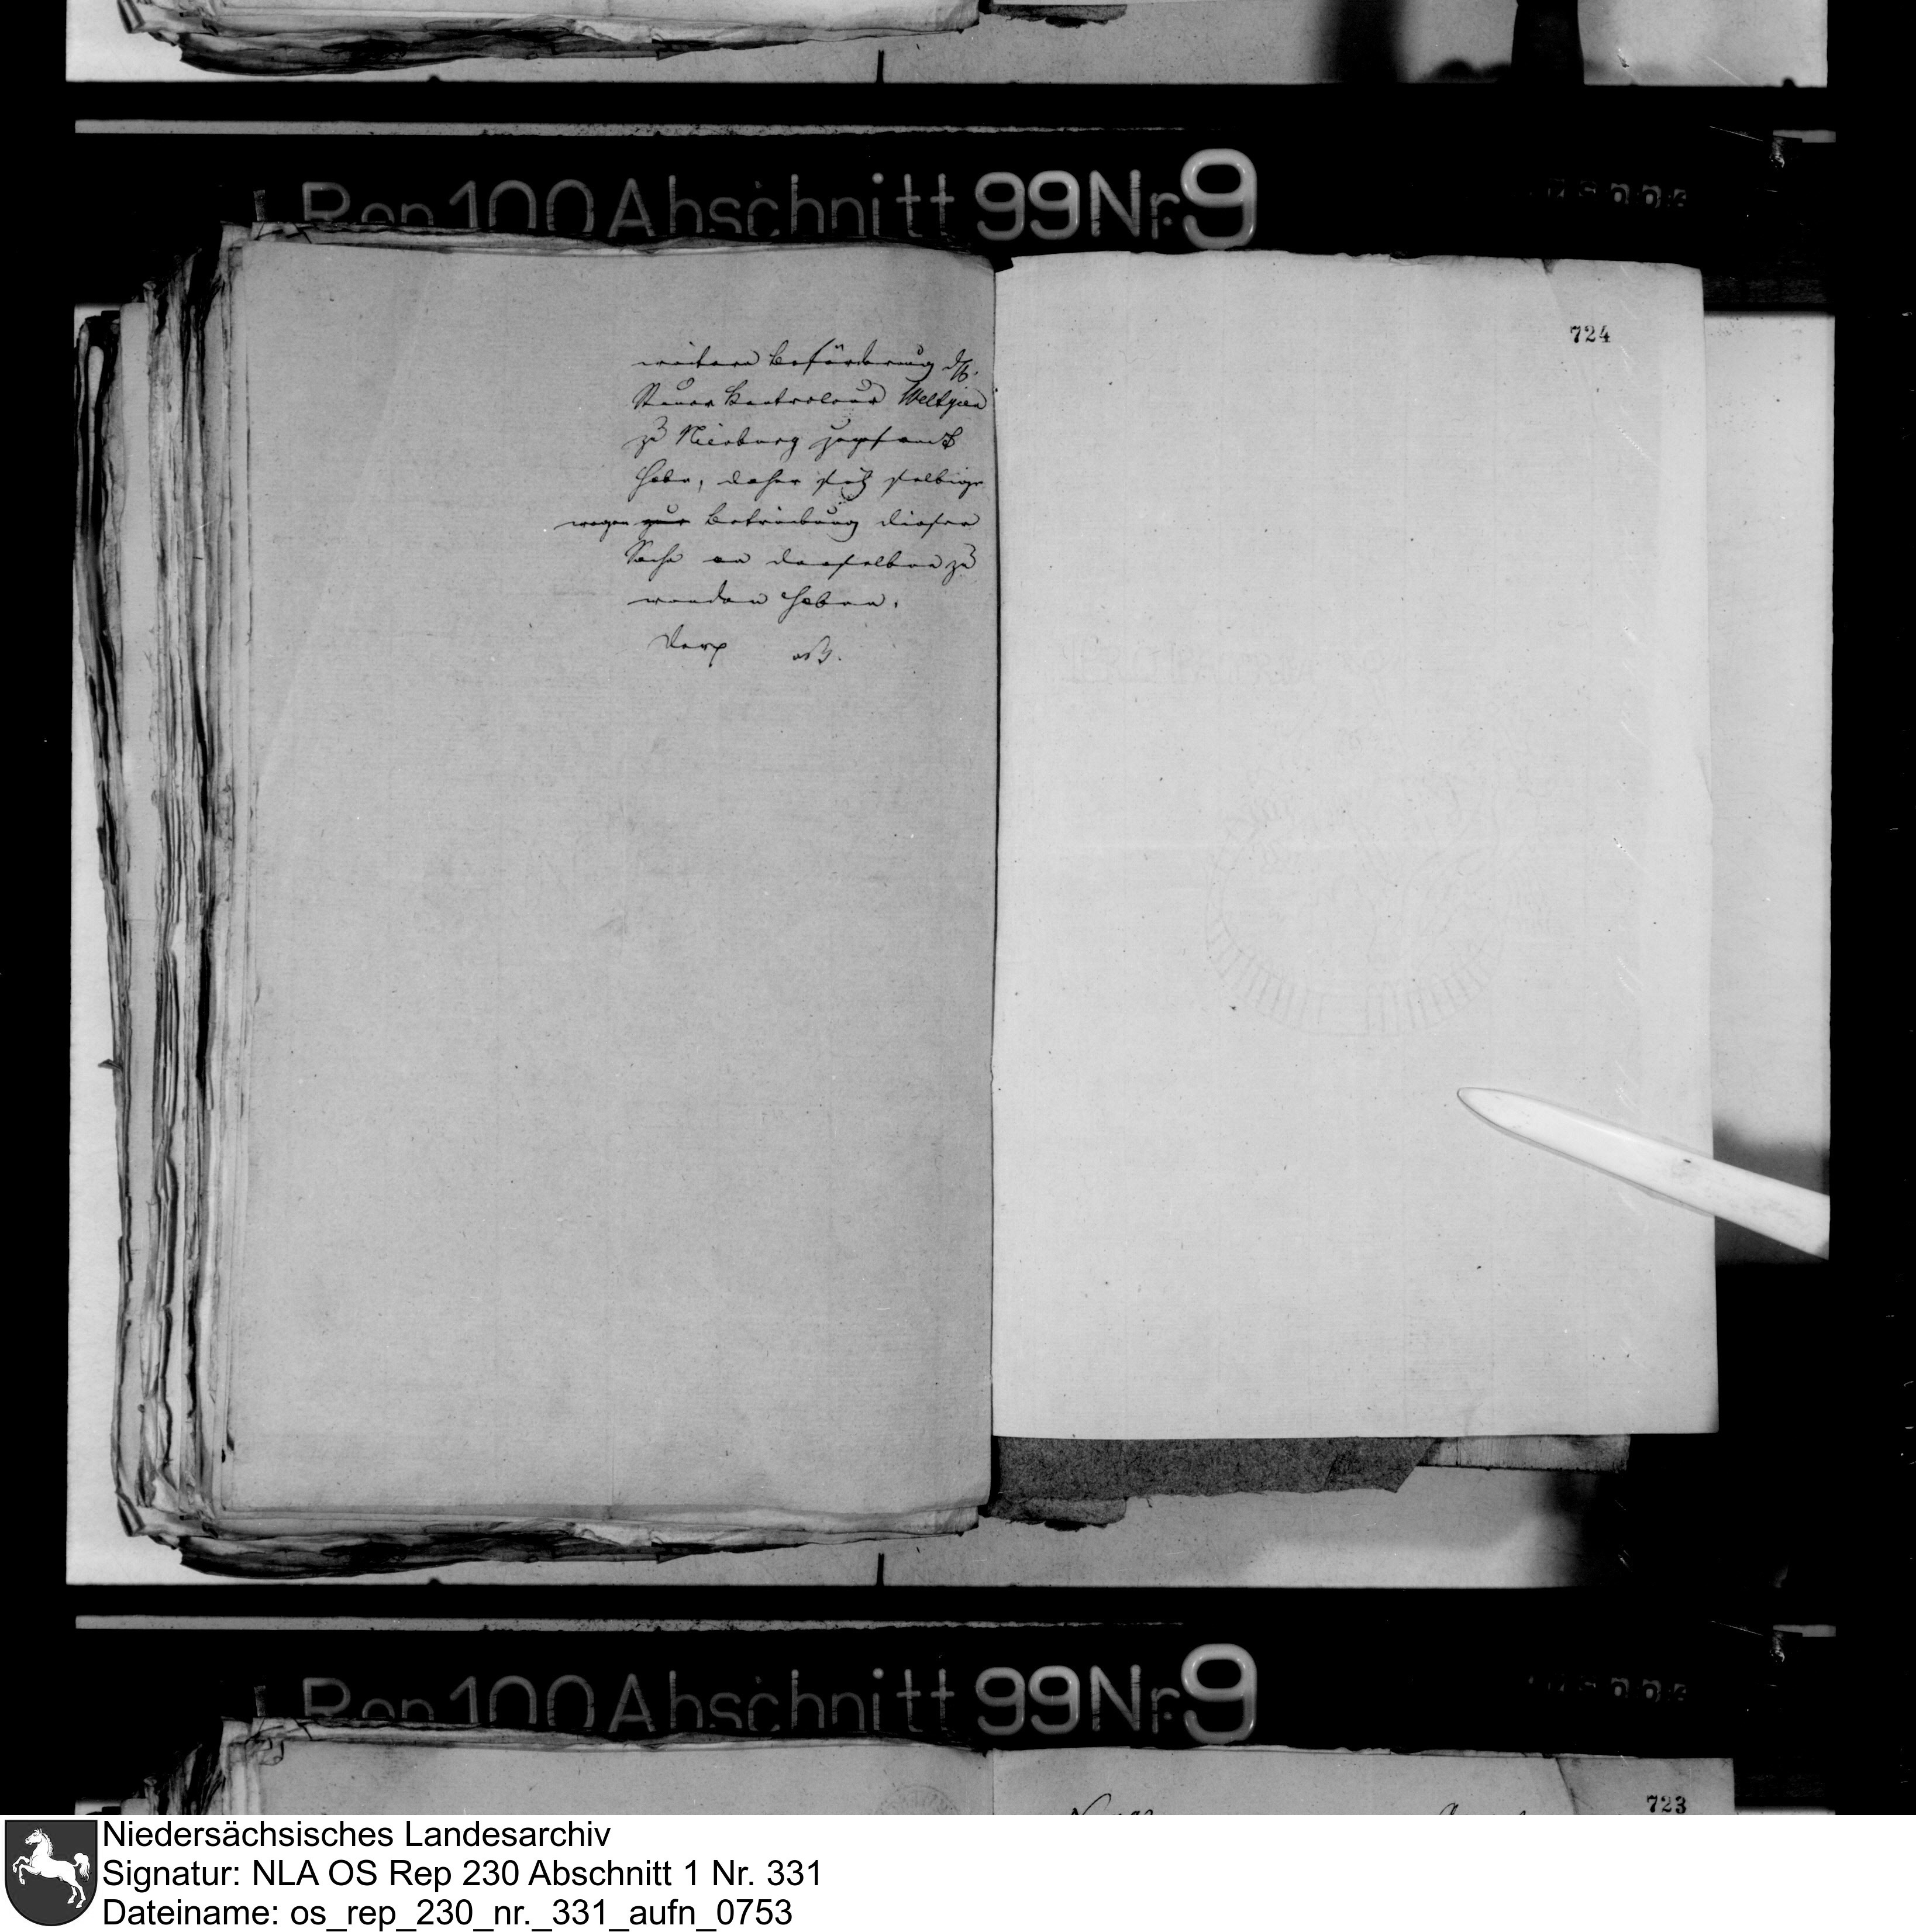 Rep 100 Abschnitt 99 Nr. 9
724
weitern Beförderung d/H.
Steuer Kontroleur Weltzien
zu Nienburg zugesandt
habe, daher sich selbige
wegen zur Betreibung dieser
Sache an denselben zu
wenden haben.
Rep 100 Abschnitt 99 Nr. 9
723
Niedersächsisches Landesarchiv
Signatur: NLA OS Rep 230 Abschnitt 1 Nr. 331
Dateiname: os_rep_230_nr._331_aufn_0753